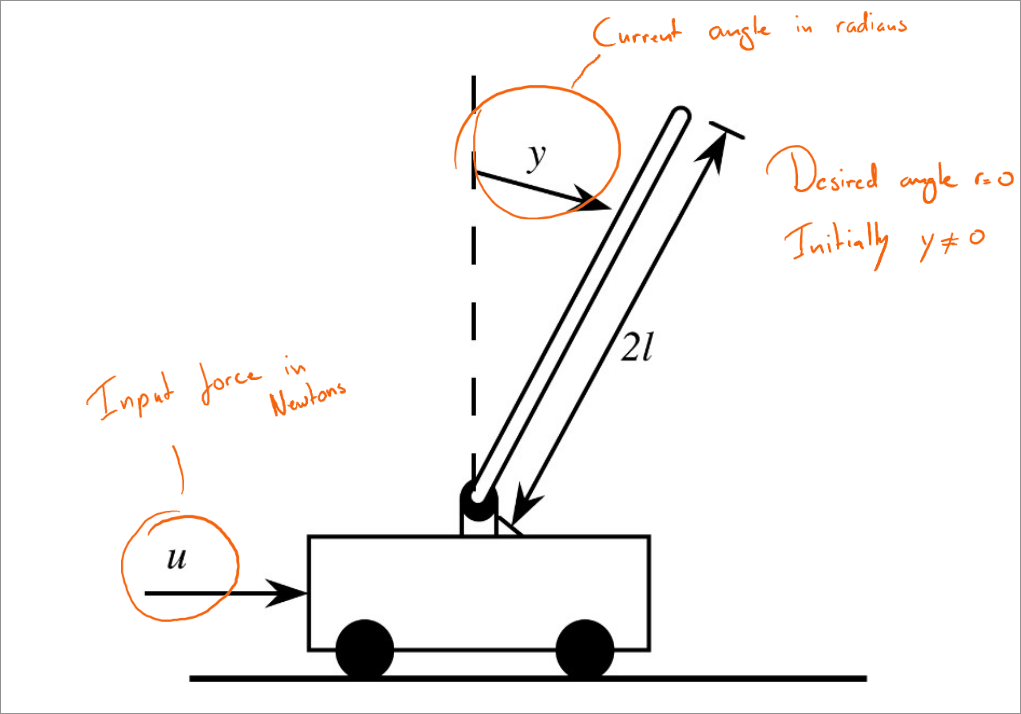 Current angle in radians
y
Desired angle r=0
Initially y≠0
2l
Input force in
Newtons
u